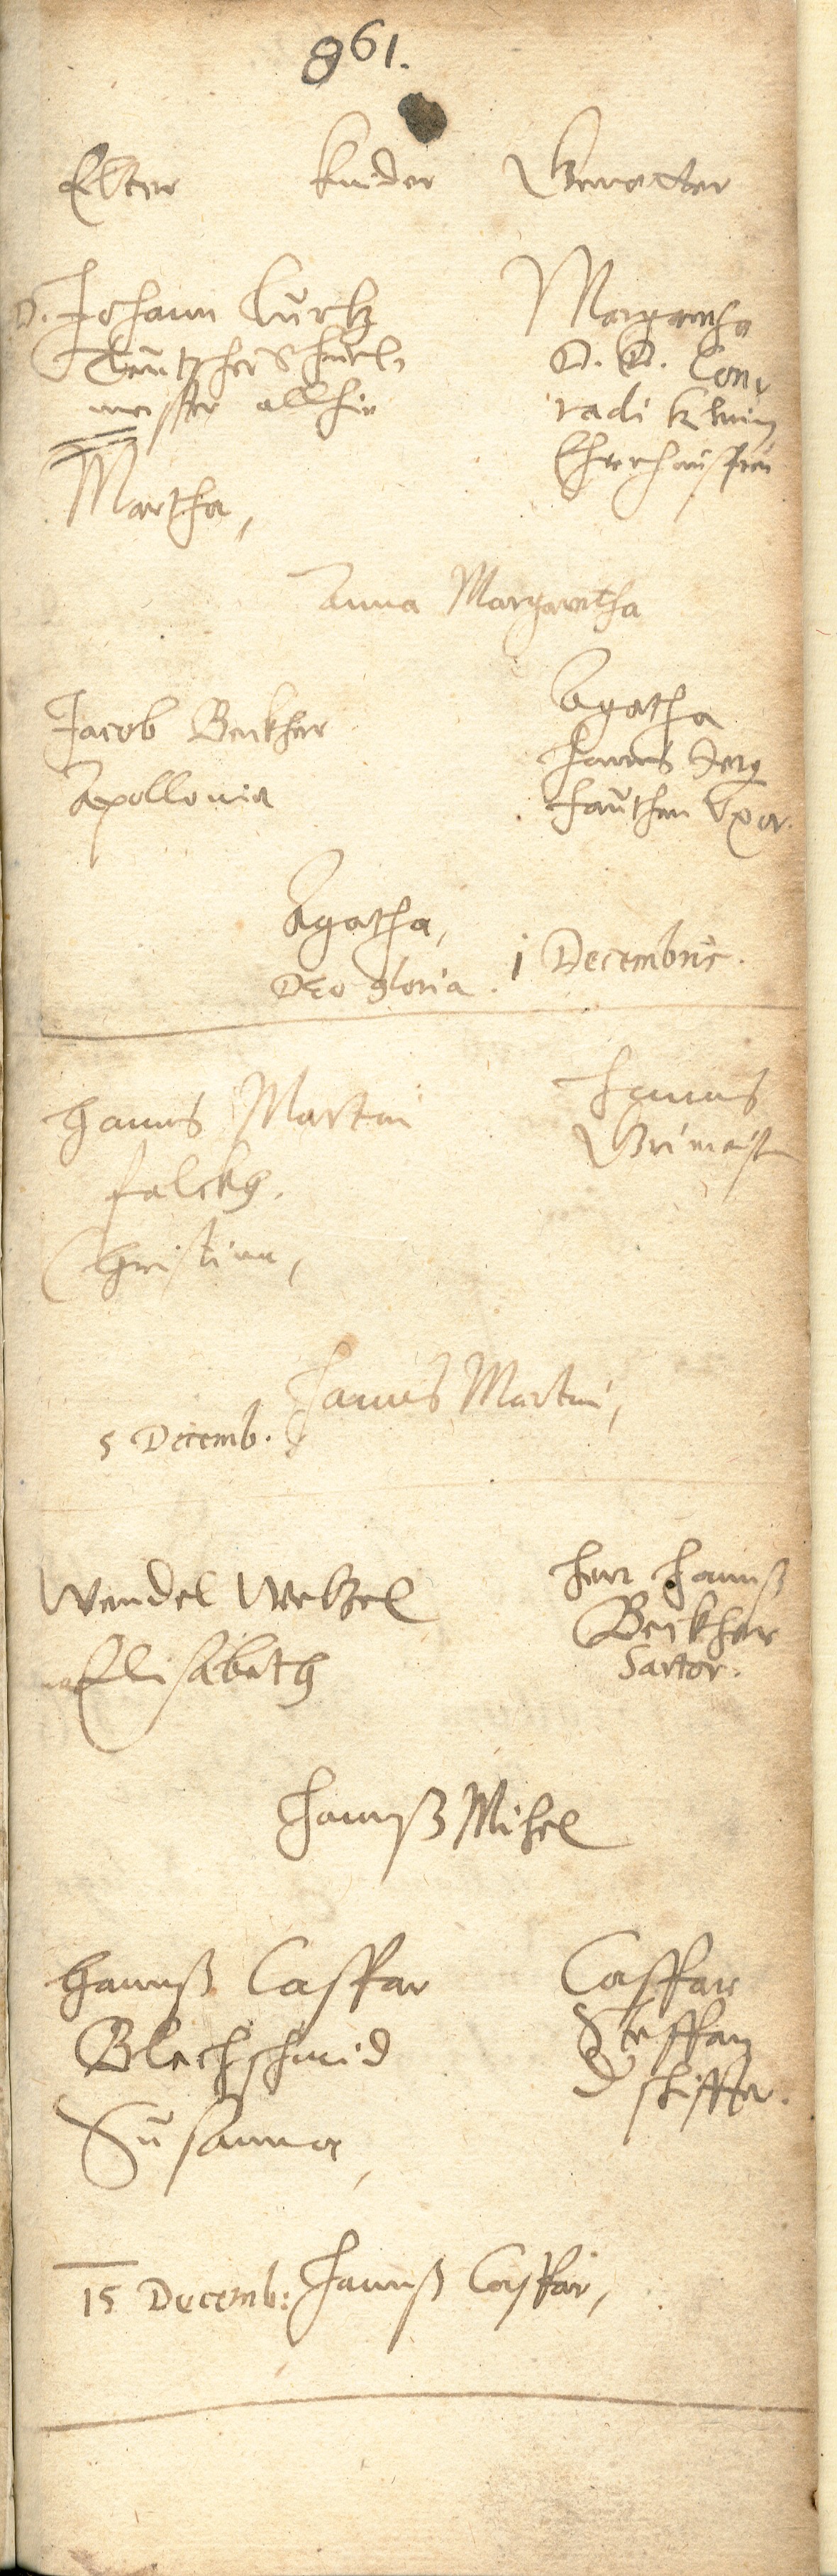 861.
Elter Kinder Gevatter
D. Johann Curtz
Teutscher Schuel-
meister allhie
Martha,
Margaretha
D. D. Con-
radi
Ehrnhausfrau
Anna Margaretha
Jacob Beckher
Apollonia
Agatha
Hanns Jerg
Fauthen Uxor.
Agatha,
DEO gloria. 1 Decembris.
Hanns Martin
Falckh.
Christina,
Hanns
Hanns Martin,
5 Decemb.
Wendel Wetzel
Elisabeth
Herr Hannß
Beckher
Sartor.
Hannß Michel
Hannß Casspar
Blechschmid
Susanna,
Casspar
Steffan
15 Decemb: Hannß Casspar,